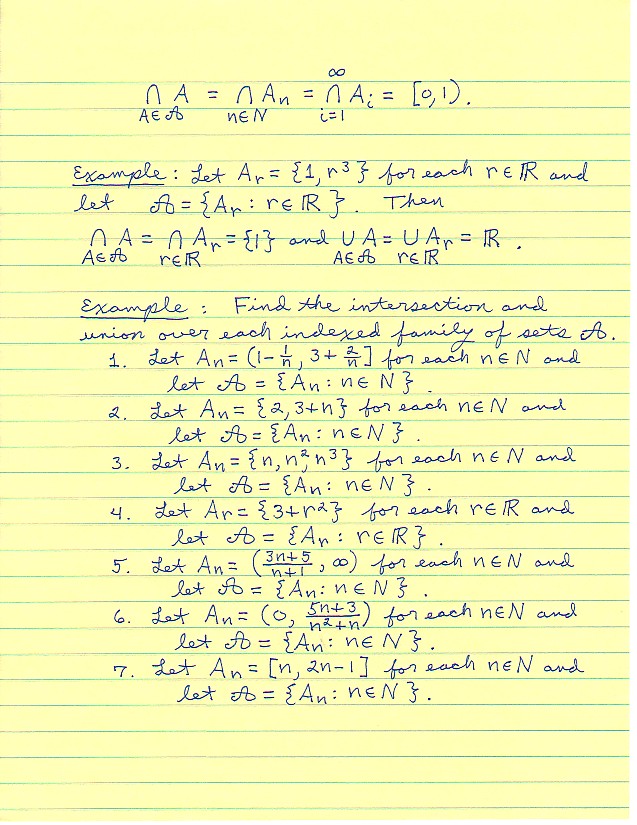 ∞
∩ A = ∩ Aₙ = ∩ Aᵢ = [0,1).
A∈𝒜 n∈N i=1
Example: Let Aᵣ = {1, r³} for each r∈ℝ and
let 𝒜 = {Aᵣ : r∈ℝ}. Then
∩ A = ∩ Aᵣ = {1} and ∪ A = ∪ Aᵣ = ℝ.
A∈𝒜 r∈ℝ A∈𝒜 r∈ℝ
Example: Find the intersection and
union over each indexed family of sets 𝒜.
1. Let Aₙ = (1 - 1/n, 3 + 2/n] for each n∈N and
let 𝒜 = {Aₙ : n∈N}.
2. Let Aₙ = {2, 3+n} for each n∈N and
let 𝒜 = {Aₙ : n∈N}.
3. Let Aₙ = {n, n², n³} for each n∈N and
let 𝒜 = {Aₙ : n∈N}.
4. Let Aᵣ = {3+r²} for each r∈ℝ and
let 𝒜 = {Aᵣ : r∈ℝ}.
5. Let Aₙ = ((3n+5)/(n+1), ∞) for each n∈N and
let 𝒜 = {Aₙ : n∈N}.
6. Let Aₙ = (0, (5n+3)/(n²+n)) for each n∈N and
let 𝒜 = {Aₙ : n∈N}.
7. Let Aₙ = [n, 2n-1] for each n∈N and
let 𝒜 = {Aₙ : n∈N}.